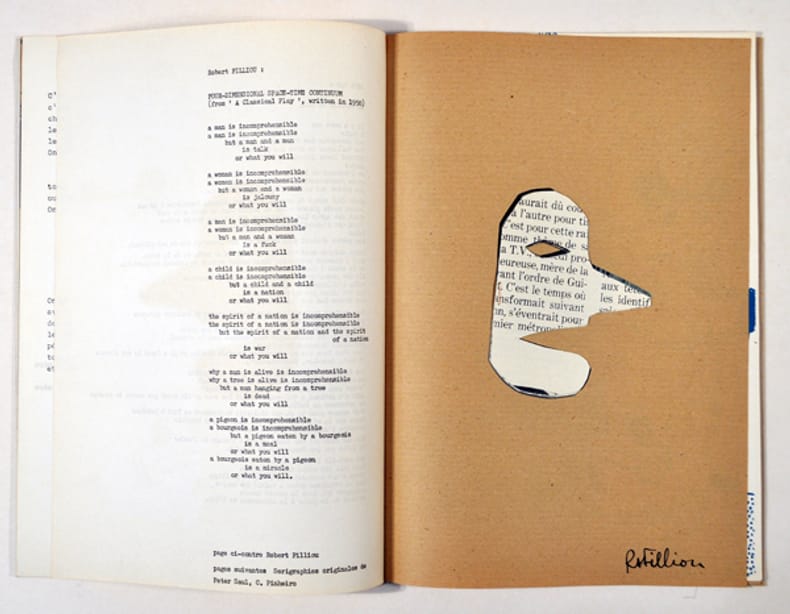 C'
c'
ch
le
le
On
to
ou
On
On
av
do
le
pé
to
et
Robert FILLIOU :
FOUR-DIMENSIONAL SPACE-TIME CONTINUUM
(from ' A Classical Play ', written in 1958)
a man is incomprehensible
a man is incomprehensible
but a man and a man
is talk
or what you will
a woman is incomprehensible
a woman is incomprehensible
but a woman and a woman
is jalousy
or what you will
a man is incomprehensible
a woman is incomprehensible
but a man and a woman
is a fuck
or what you will
a child is incomprehensible
a child is incomprehensible
but a child and a child
is a nation
or what you will
the spirit of a nation is incomprehensible
the spirit of a nation is incomprehensible
but the spirit of a nation and the spirit
of a nation
is war
or what you will
why a man is alive is incomprehensible
why a tree is alive is incomprehensible
but a man hanging from a tree
is dead
or what you will
a pigeon is incomprehensible
a bourgeois is incomprehensible
but a pigeon eaten by a bourgeois
is a meal
or what you will
a bourgeois eaten by a pigeon
is a miracle
or what you will.
page ci-contre Robert Filliou
pages suivantes Serigraphies originales de
Peter Saul, C. Pinheiro
aurait dû cou
à l'autre pour ti
C'est pour cette rai
omme thème de sa
a T.V., pro-
eureuse, mère de la
ant l'ordre de Gui-
. C'est le temps où
nsformait suivant
n, s'éventrait pour
mier métropoli
aux tête
les identif
RobFilliou